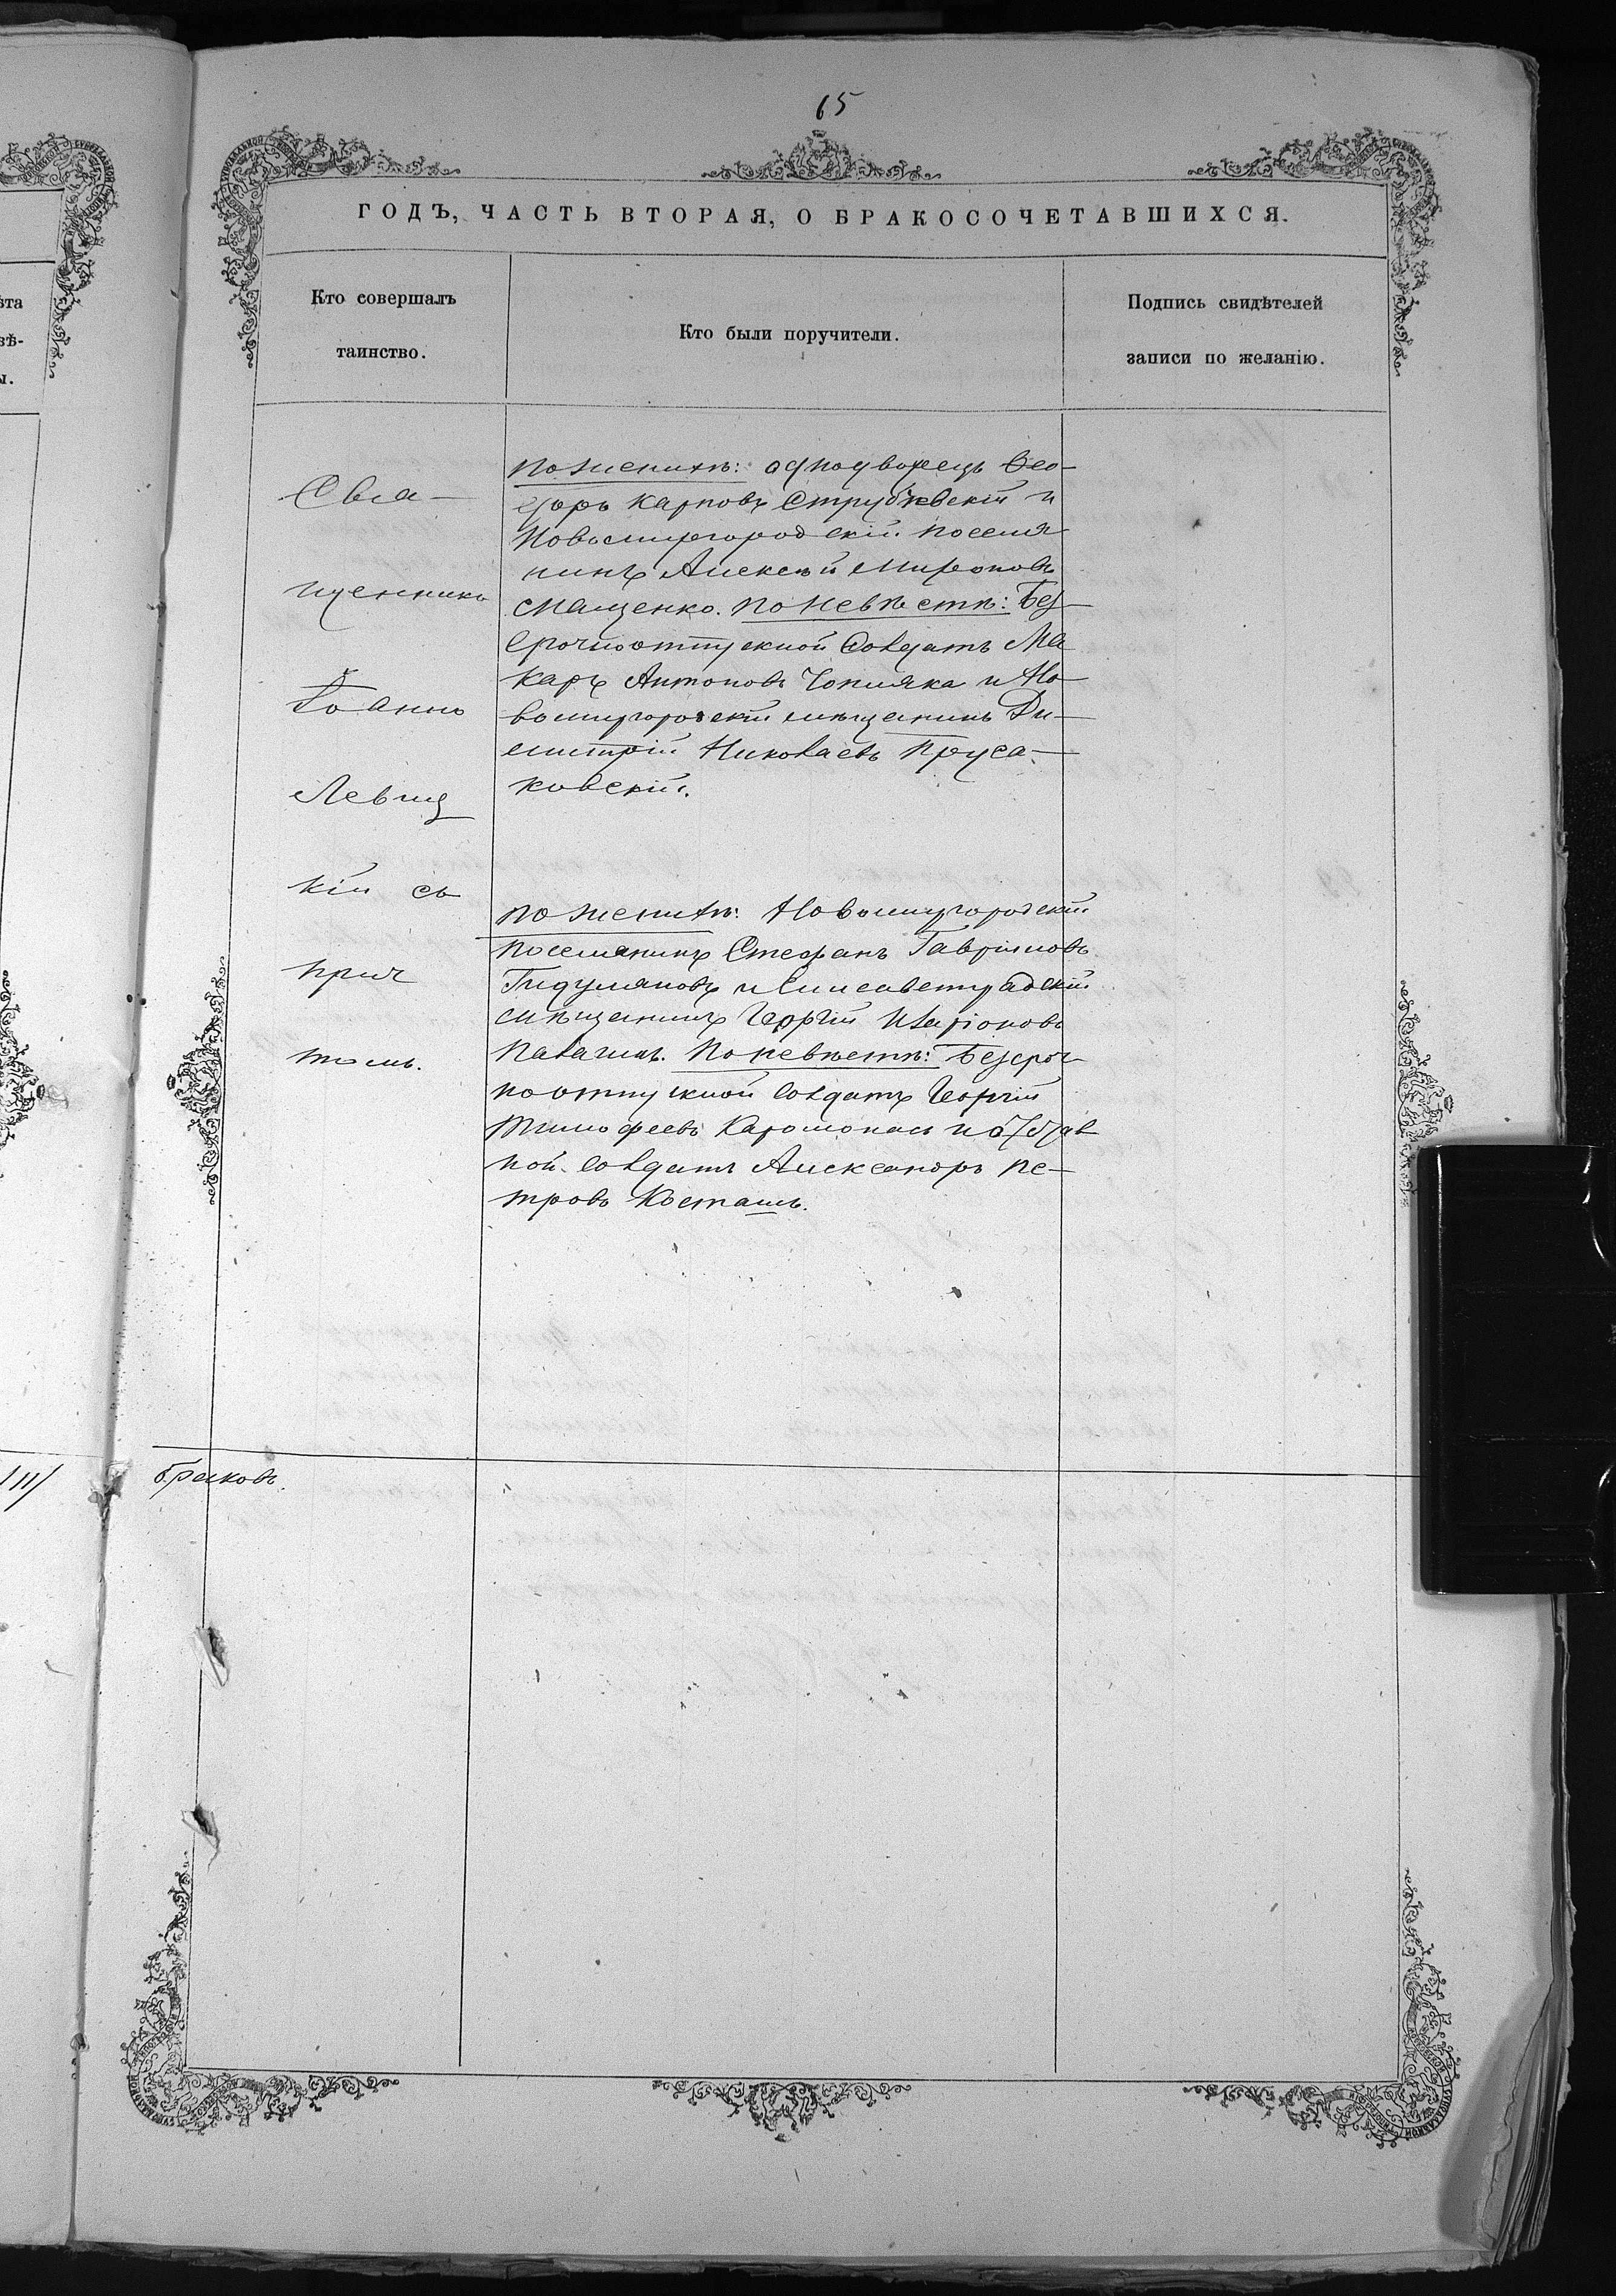 65
ГОДЪ, ЧАСТЬ ВТОРАЯ, О БРАКОСОЧЕТАВШИХСЯ.
Кто совершалъ
таинство.
Кто были поручители.
Подпись свидѣтелей
записи по желанію.
Свя-
щенникъ
Іоаннъ
Левиц
кій съ
прич
томъ.
по женихѣ: однодворецъ Ѳео-
доръ Карповъ Струбчевскій и
Новомиргородскій поселя
нинъ Алексѣй Мироновъ
Мащенко. по невѣстѣ: Без-
срочноотпускной солдатъ Ма
каръ Антоновъ Чопляка и Но-
вомиргородскій мѣщанинъ Ди-
митрій Николаевъ Пруса-
ковскій.
по женихѣ: Новомиргородскій
поселянинъ Стефанъ Гавриловъ
Гидуляновъ и Елисаветградскій
мѣщанинъ Георгій Иларіоновъ
Палагинъ. По невѣстѣ: Безсроч-
ноотпускной солдатъ Георгій
Тимофеевъ и отстав
ной солдатъ Александръ Пе-
тровъ Косташъ.
браковъ.